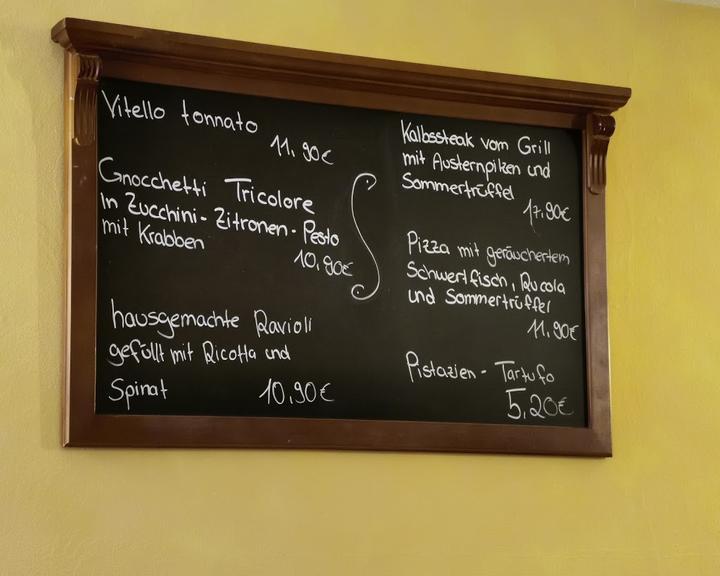 Vitello tonnato
11,90€
Gnocchetti Tricolore
In Zucchini-Zitronen-Pesto
mit Krabben
10,90€
hausgemachte Ravioli
gefüllt mit Ricotta und
Spinat 10,90€
Kalbssteak vom Grill
mit Austernpilzen und
Sommertrüffel
17,90€
Pizza mit geräuchertem
Schwertfisch, Rucola
und Sommertrüffel
11,90€
Pistazien-Tartufo
5,20€